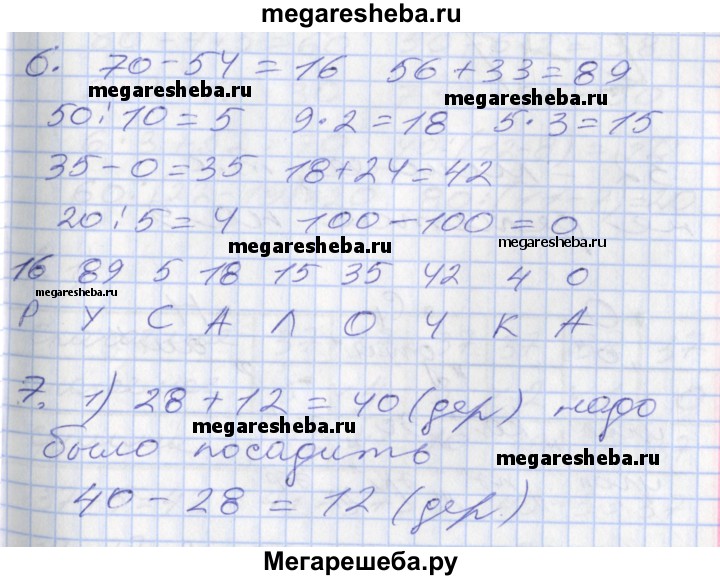 megaresheba.ru
6. 70 - 54 = 16 56 + 33 = 89
megaresheba.ru megaresheba.ru
50 : 10 = 5 9 · 2 = 18 5 · 3 = 15
35 - 0 = 35 18 + 24 = 42
20 : 5 = 4 100 - 100 = 0
megaresheba.ru megaresheba.ru
16 89 5 18 15 35 42 4 0
megaresheba.ru
Р У С А Л О Ч К А
7. 1) 28 + 12 = 40 (дер.) надо
megaresheba.ru
было посадить
megaresheba.ru
40 - 28 = 12 (дер.)
Мегарешеба.ру